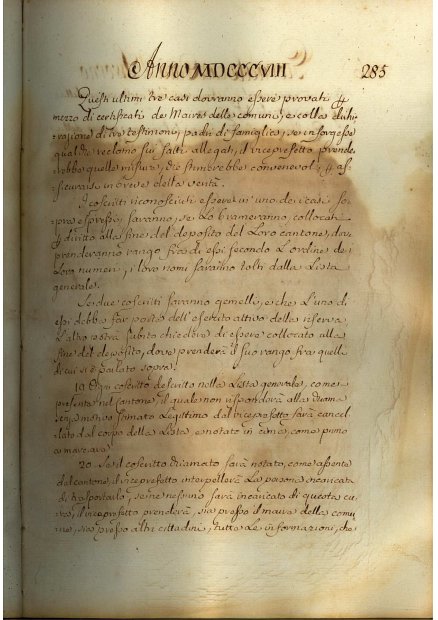 Anno MDCCCVIII 285
Questi ultimi tre casi dovranno essere provati p
mezzo di certificati de Maires delle comuni, e colla dichi-
razione di tre testimonj, padri di famiglia, se insorgesse
qualche reclamo sui fatti allegati, il viceprefetto prende-
rebbe quelle misure, che stimerebbe convenevoli p as-
sicurarsi in breve della verità.
I coscritti riconosciuti essere in uno de casi so-
pra espressi saranno, se lo brameranno, collocati
p diritto alla fine del deposito del Loro cantone, dove
prenderanno rango fra di essi secondo L'ordine de
Loro numeri, i loro nomi saranno tolti dalla Lista
generale.
Se due coscritti saranno gemelli, e che L'uno di
essi debba far parte dell'esercito attivo della riserva
L'altro potrà subito chiedere di essere collocato alla
fine del deposito, dove prenderà il suo rango fra quelli
di cui si è parlato sopra.
19. Ogni coscritto descritto nella Lista generale, come
presente nel cantone il quale non risponderà alla chiama
senza motivo stimato Legittimo dal viceprefetto sarà cancel-
lato dal corpo della Lista e notato in cima, come primo
a marciare.
20. Se il coscritto chiamato sarà notato, come assente
dal cantone, il viceprefetto interpellerà La persona incaricata
di trasportarlo, se ne nessuno sarà incaricato di questa cu-
ra, il viceprefetto prenderà, sia presso il maire della comu-
ne, sia presso altri cittadini, tutte Le informazioni, che